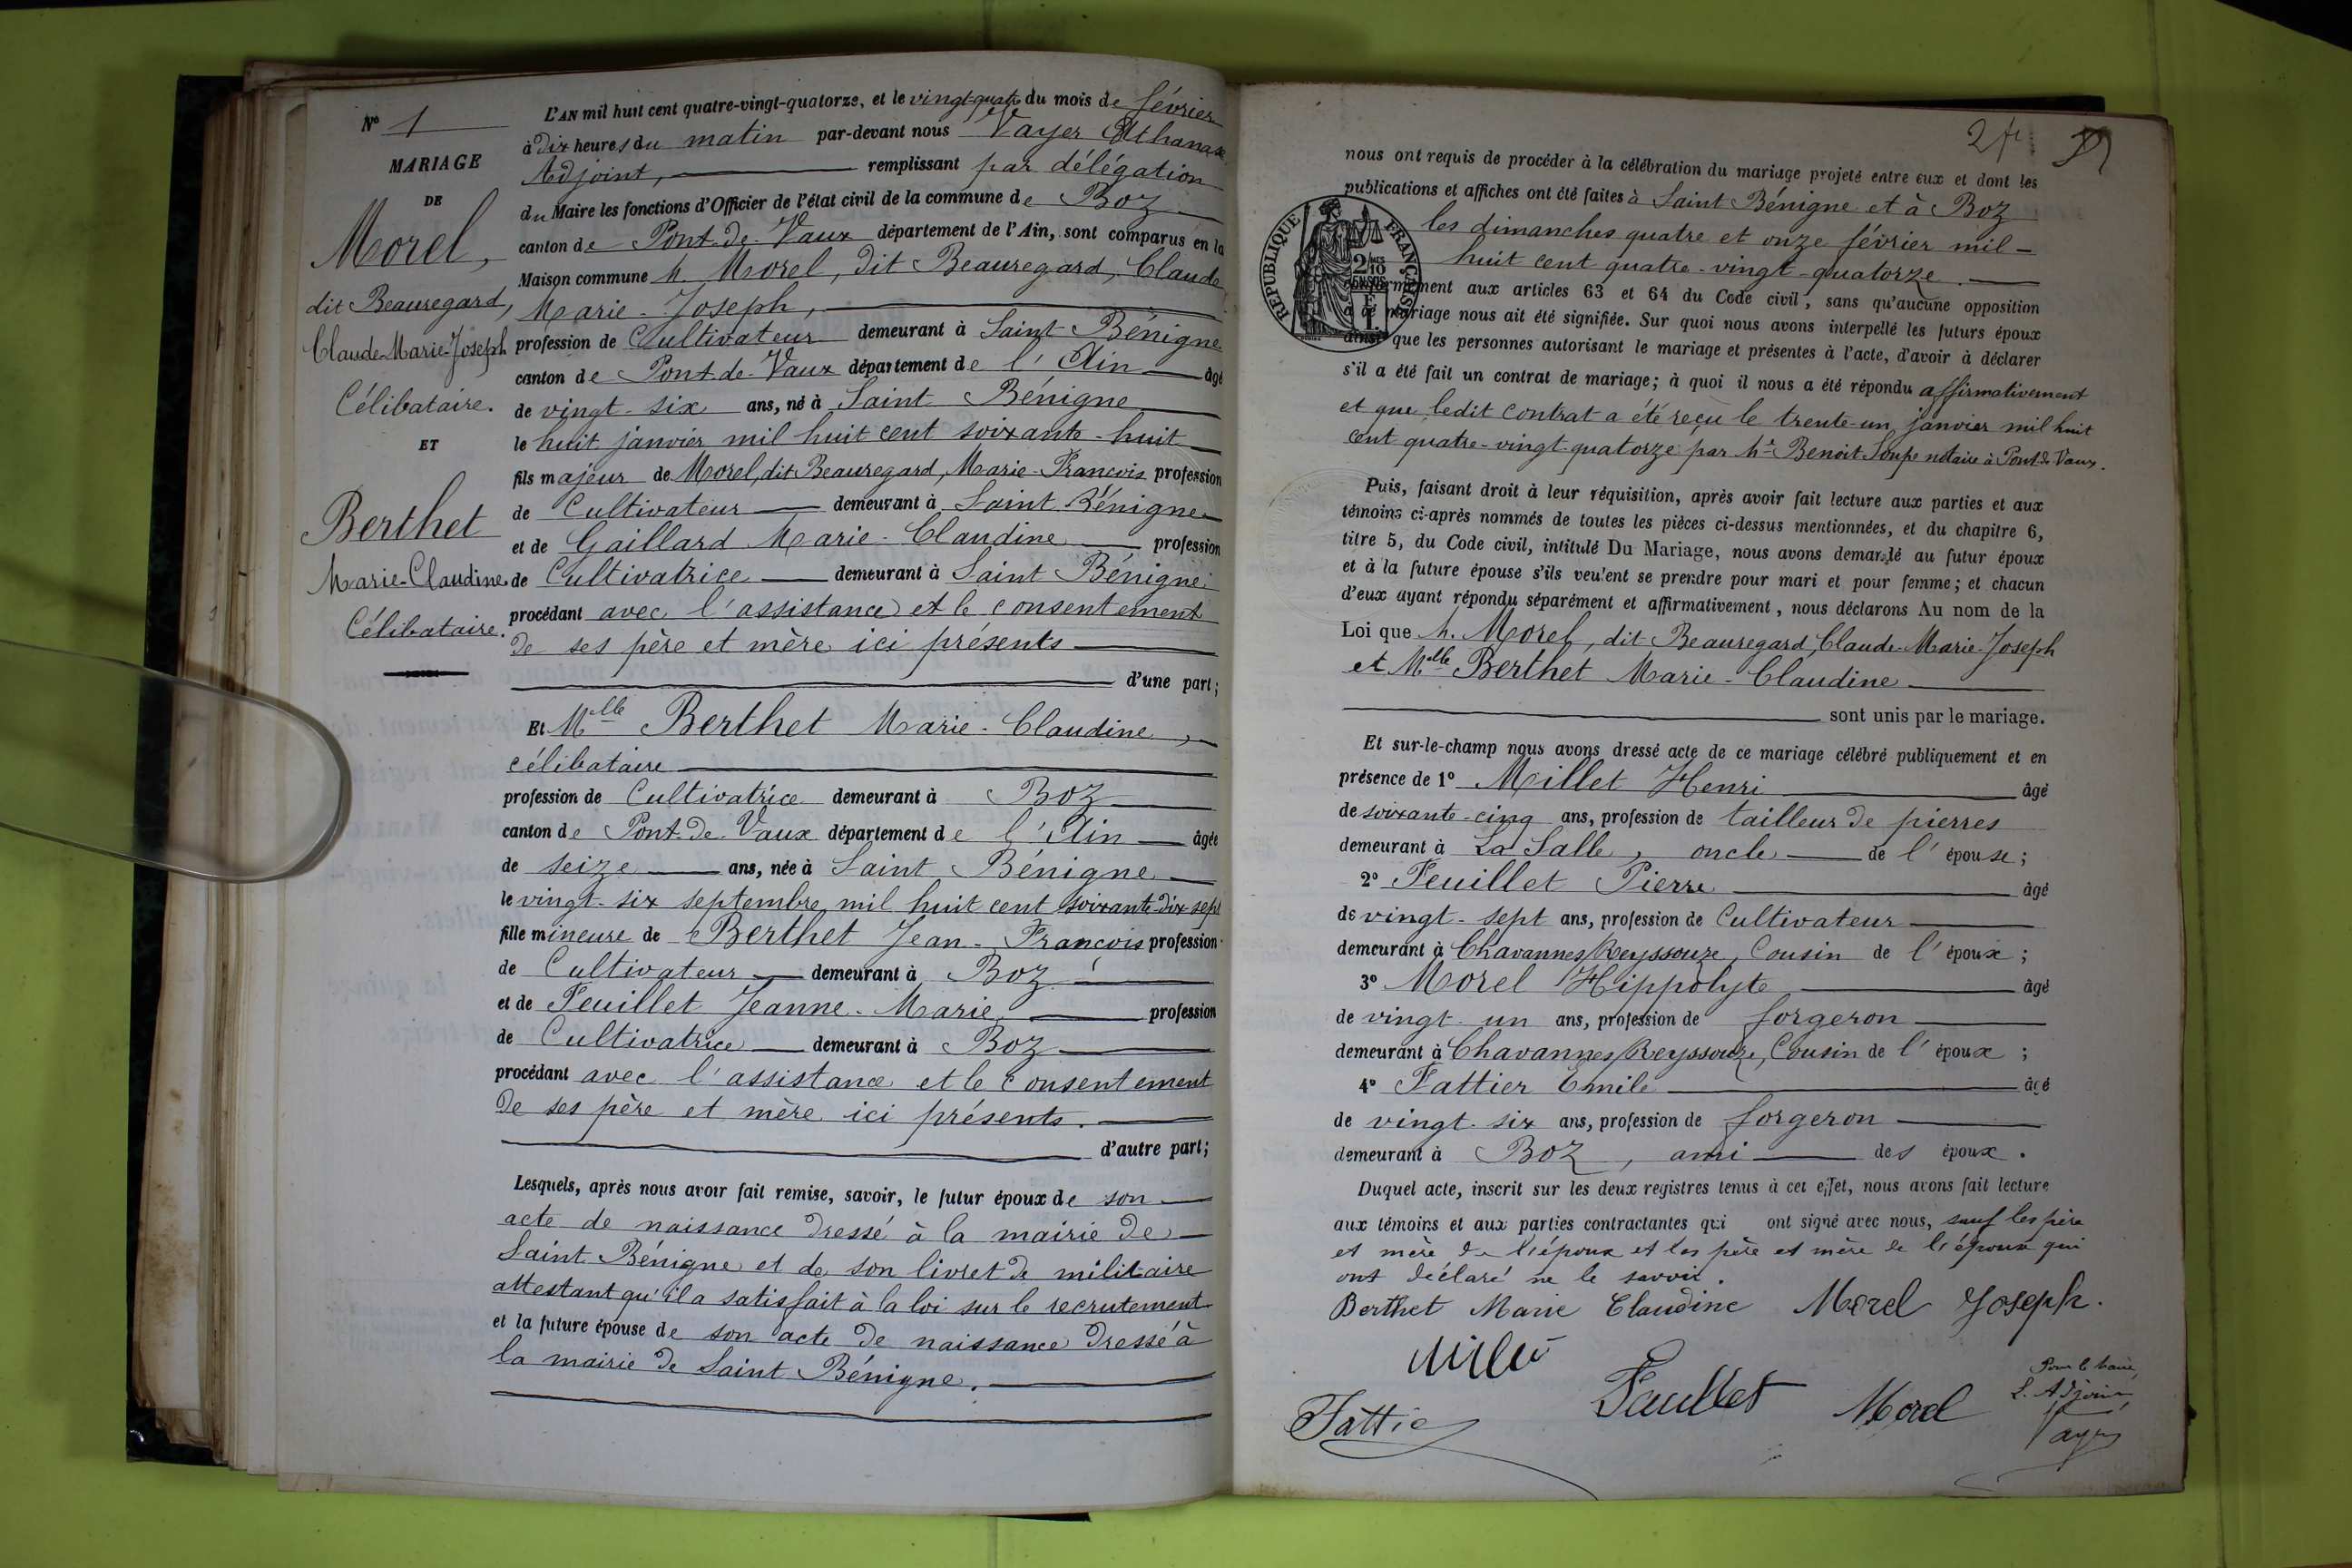 N° 1
MARIAGE
DE
Morel,
dit Beauregard,
Claude-Marie-Joseph
Célibataire.
ET
Berthet
Marie-Claudine
Célibataire.
L'AN mil huit cent quatre-vingt-quatorze, et le vingt-quatre du mois de février
à dix heures du matin par-devant nous Vayer Athanase
Adjoint, remplissant par délégation
du Maire les fonctions d'Officier de l'état civil de la commune de Boz
canton de Pont-de-Vaux département de l'Ain, sont comparus en la
Maison commune M. Morel, dit Beauregard, Claude
Marie-Joseph,
profession de Cultivateur demeurant à Saint-Bénigne
canton de Pont-de-Vaux département de l'Ain âgé
de vingt-six ans, né à Saint Bénigne
le huit janvier mil huit cent soixante-huit
fils majeur de Morel, dit Beauregard, Marie-François profession
de Cultivateur demeurant à Saint Bénigne
et de Gaillard Marie-Claudine profession
de Cultivatrice demeurant à Saint Bénigne
procédant avec l'assistance et le consentement
de ses père et mère ici présents
d'une part;
Et Melle Berthet Marie-Claudine,
célibataire
profession de Cultivatrice demeurant à Boz
canton de Pont-de-Vaux département de l'Ain âgée
de seize ans, née à Saint Bénigne
le vingt-six septembre mil huit cent soixante-dix-sept
fille mineure de Berthet Jean-François profession
de Cultivateur demeurant à Boz
et de Feuillet Jeanne-Marie profession
de Cultivatrice demeurant à Boz
procédant avec l'assistance et le consentement
de ses père et mère ici présents.
d'autre part;
Lesquels, après nous avoir fait remise, savoir, le futur époux de son
acte de naissance dressé à la mairie de
Saint-Bénigne et de son livret de militaire
attestant qu'il a satisfait à la loi sur le recrutement
et la future épouse de son acte de naissance dressé à
la mairie de Saint Bénigne.
nous ont requis de procéder à la célébration du mariage projeté entre eux et dont les
publications et affiches ont été faites à Saint Bénigne et à Boz
les dimanches quatre et onze février mil-
huit cent quatre-vingt-quatorze.
RÉPUBLIQUE FRANÇAISE
conformément aux articles 63 et 64 du Code civil, sans qu'aucune opposition
à ce mariage nous ait été signifiée. Sur quoi nous avons interpellé les futurs époux
ainsi que les personnes autorisant le mariage et présentes à l'acte, d'avoir à déclarer
s'il a été fait un contrat de mariage; à quoi il nous a été répondu affirmativement
et que ledit contrat a été reçu le trente-un janvier mil huit
cent quatre-vingt-quatorze par Me Benoit Soupe notaire à Pont de Vaux.
Puis, faisant droit à leur réquisition, après avoir fait lecture aux parties et aux
témoins ci-après nommés de toutes les pièces ci-dessus mentionnées, et du chapitre 6,
titre 5, du Code civil, intitulé Du Mariage, nous avons demandé au futur époux
et à la future épouse s'ils veulent se prendre pour mari et pour femme; et chacun
d'eux ayant répondu séparément et affirmativement, nous déclarons Au nom de la
Loi que M. Morel, dit Beauregard, Claude-Marie-Joseph
et Melle Berthet Marie-Claudine
sont unis par le mariage.
Et sur-le-champ nous avons dressé acte de ce mariage célébré publiquement et en
présence de 1° Millet Henri âgé
de soixante-cinq ans, profession de tailleur de pierres
demeurant à La Salle, oncle de l'épouse;
2° Feuillet Pierre âgé
de vingt-sept ans, profession de Cultivateur
demeurant à Chavannes/Reyssouze, Cousin de l'époux;
3° Morel Hippolyte âgé
de vingt un ans, profession de forgeron
demeurant à Chavannes/Reyssouze, Cousin de l'époux;
4° Fattier Emile âgé
de vingt-six ans, profession de forgeron
demeurant à Boz, ami des époux.
Duquel acte, inscrit sur les deux registres tenus à cet effet, nous avons fait lecture
aux témoins et aux parties contractantes qui ont signé avec nous, sauf les père
et mère de l'époux et les père et mère de l'épouse qui
ont déclaré ne le savoir.
Berthet Marie Claudine Morel Joseph.
Millet
Fattier Feuillet Morel
Pour le Maire,
L'Adjoint,
Vayer